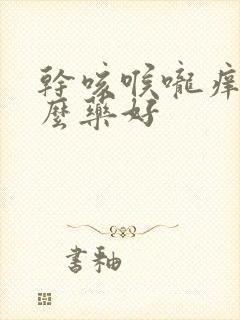 幹咳喉嚨癢
麼藥好
書釉